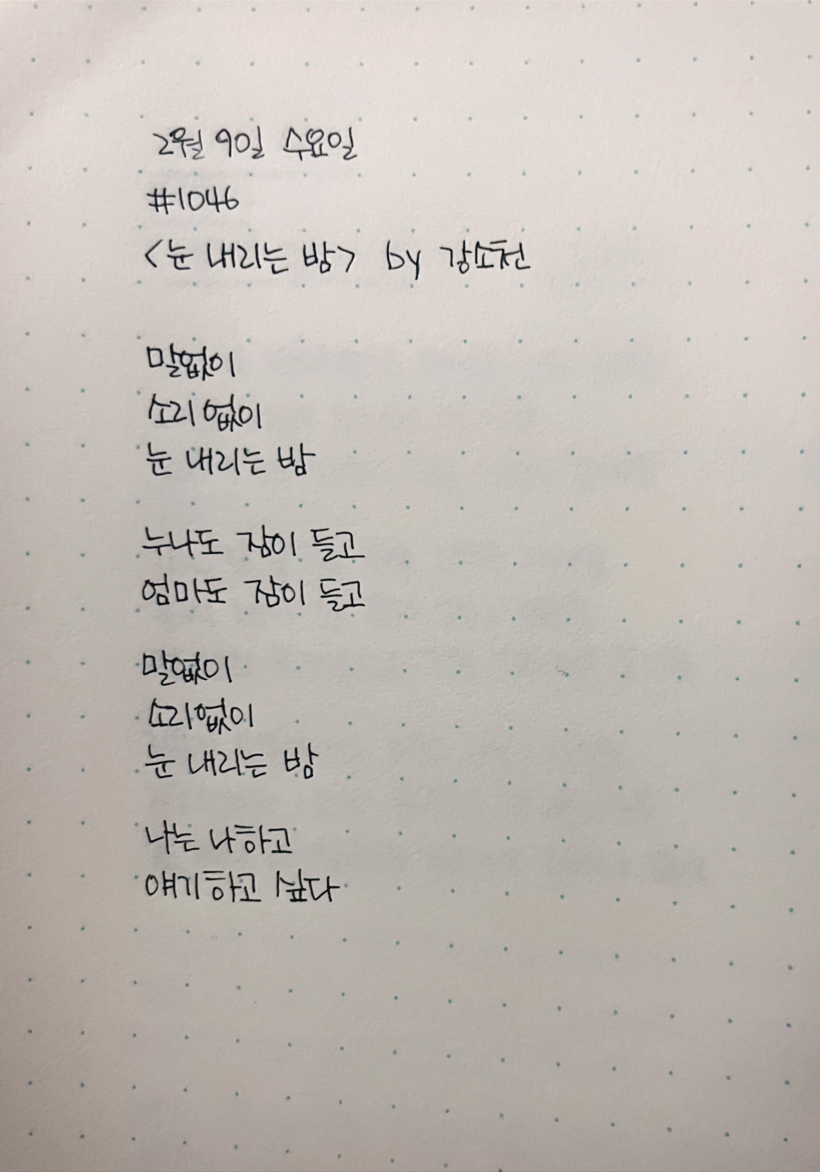 2월 9일 수요일
#1046
<눈 내리는 밤> by 강소천
말없이
소리 없이
눈 내리는 밤
누나도 잠이 들고
엄마도 잠이 들고
말없이
소리 없이
눈 내리는 밤
나는 나하고
얘기하고 싶다